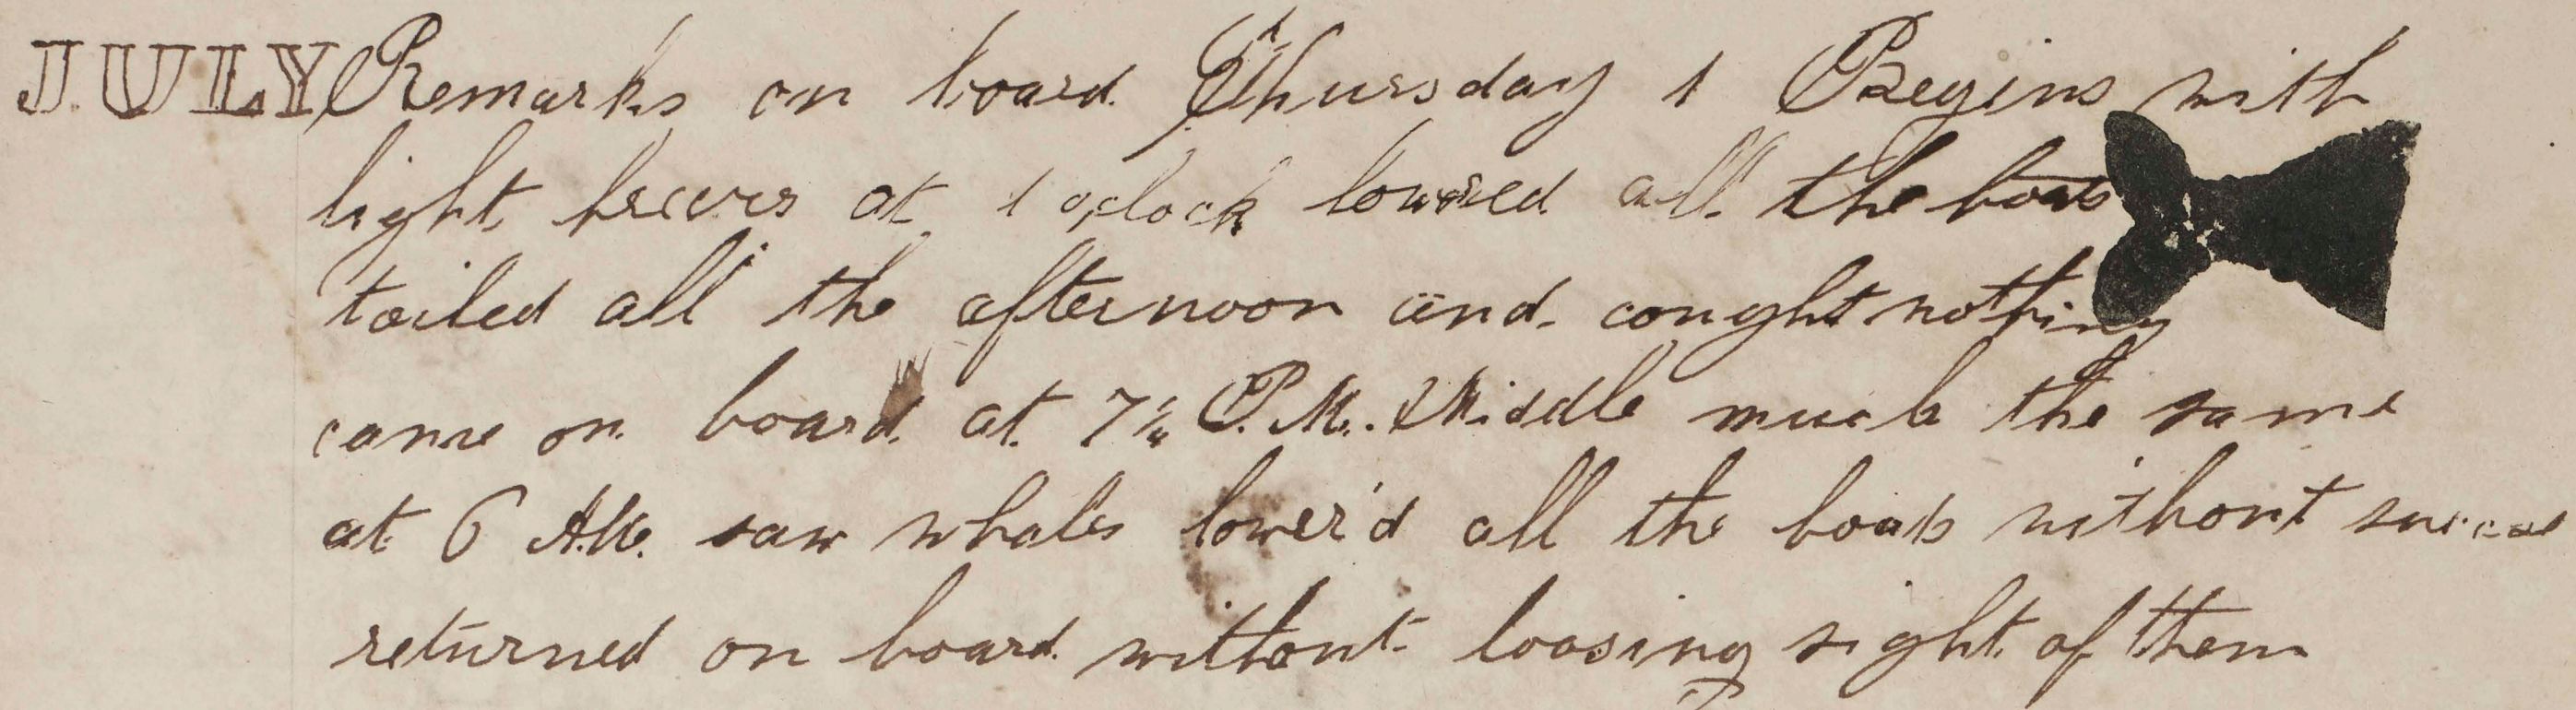 JULY Remarks on board Thursday 1 Begins with
light at 1 oclock lowered all the boats
toiled all the afternoon and cought nothing
came on board at 7 1/4 P.M. Middle much the same
at 6 A.M. saw whales lower'd all the boats without
returned on board without loosing sight of them